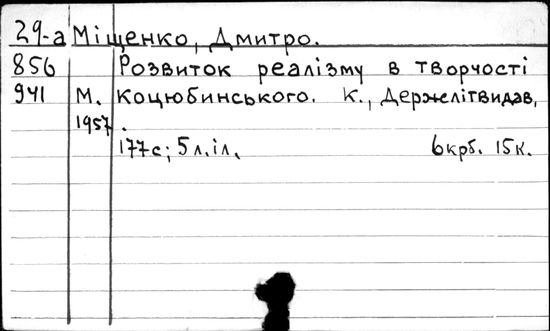 29-а Міщенко, Дмитро.
856 Розвиток реалізму в творчості
941 М. Коцюбинського. К., Держлітвидав,
1957.
177с; 5 л. іл. 6 крб. 15 к.